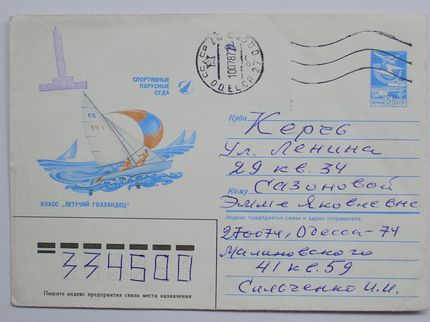 СПОРТИВНЫЕ
ПАРУСНЫЕ
СУДА
КЛАСС „ЛЕТУЧИЙ ГОЛЛАНДЕЦ"
СССР
ОДЕССА 27
ПОЧТА СССР
Куда Керчь
ул. Ленина
29 кв. 34
Кому Сазоновой
Эмме Яковлевне
Индекс предприятия связи и адрес отправителя
270074, Одесса-74
Малиновского
41 кв. 59
Сильченко И.И.
334500
Пишите индекс предприятия связи места назначения